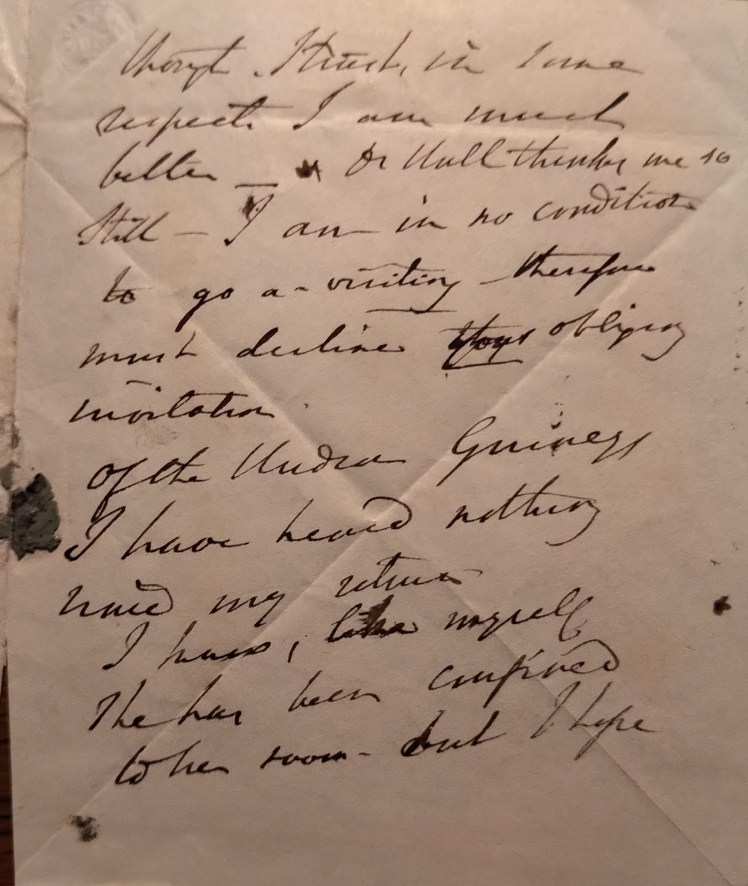 though I trust, in some
respects I am much
better — Dr Hull thinks me so
still — I am in no condition
to go a-visiting therefore
must decline your obliging
invitation.
of the
I have heard nothing
my return
I , like myself
she has been confined
to her room - but I hope